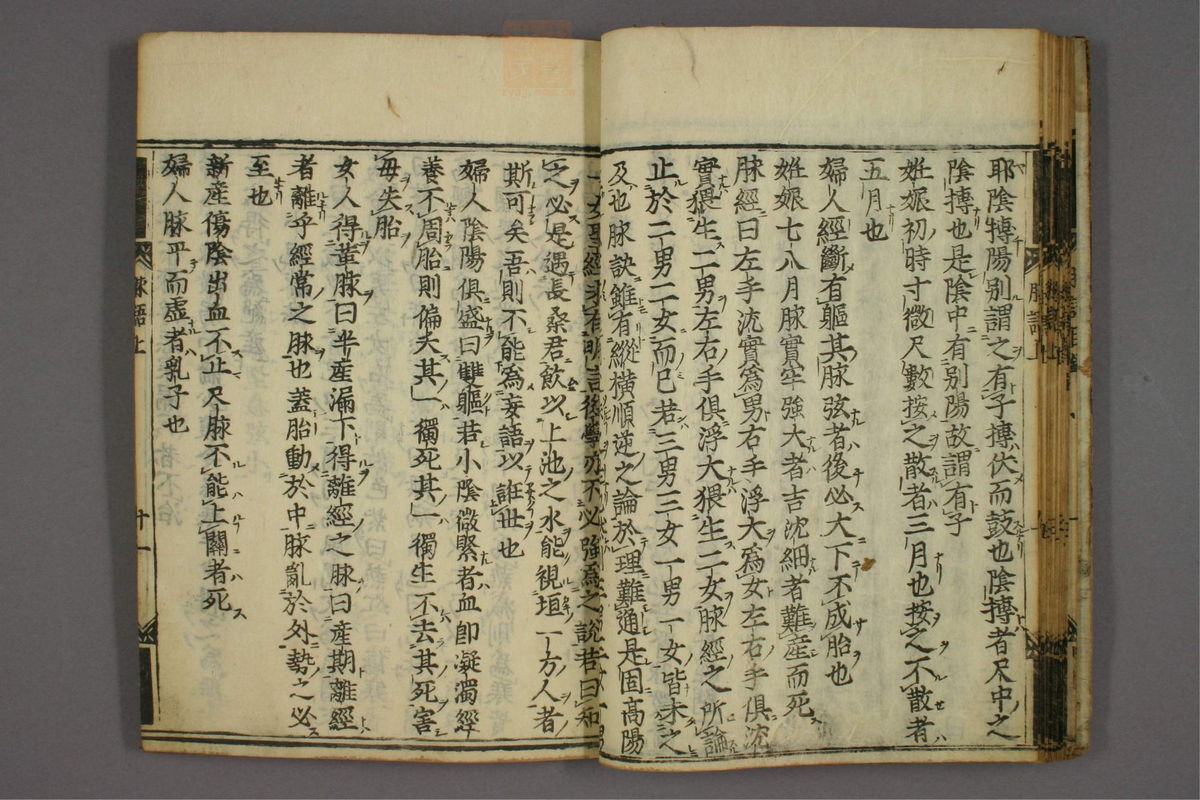 耶陰搏陽別謂之有子搏伏而鼓也陰搏者尺中之
陰搏也是陰中有別陽故謂有子
姙娠初時寸微尺數按之散者三月也按之不散者
五月也
婦人經斷有軀其脉弦者後必大下不成胎也
姙娠七八月脉實牢強大者吉沈細者難產而死
脉經曰左手沉實爲男右手浮大爲女左右手俱沉
實猥生二男左右手俱浮大猥生二女脉經之所論
止於二男二女而已若三男三女一男一女皆未之
及也脉訣雖有縱橫順逆之論於理難通是固高陽
經未有明言後學亦不必強爲之說若曰知
之必是遇長桑君飲以上池之水能視垣一方人者
斯可矣吾則不能爲妄語以誑世也
婦人陰陽俱盛曰雙軀若小陰微緊者血卽凝濁經
養不周胎則偏夭其一獨死其一獨生不去其死害
母失胎
女人得革脉曰半產漏下得離經之脉曰產期離經
者離乎經常之脉也蓋胎動於中脉亂於外勢之必
至也
新產傷陰出血不止尺脉不能上關者死
婦人脉平而虛者乳子也
脉語上
十一